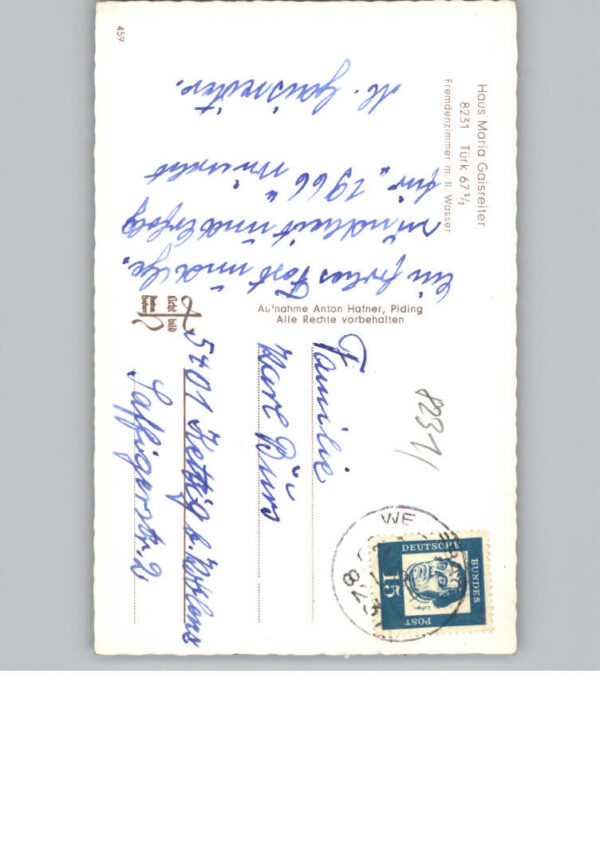 Haus Maria Gaisreiter
8231 Türk 67 1/2
Fremdenzimmer m. fl. Wasser
Ein frohes Fest und alles
Gesundheit und Erfolg
für „1966" wünscht
M. Gaisreiter.
Aufnahme Anton Hafner, Piding
Alle Rechte vorbehalten
licht bild
459
Familie
Karl Bürs
5401 Kettig b. Koblenz
Saffigerstr. 2
8231
DEUTSCHE
BUNDES
POST
15
Luther
WE